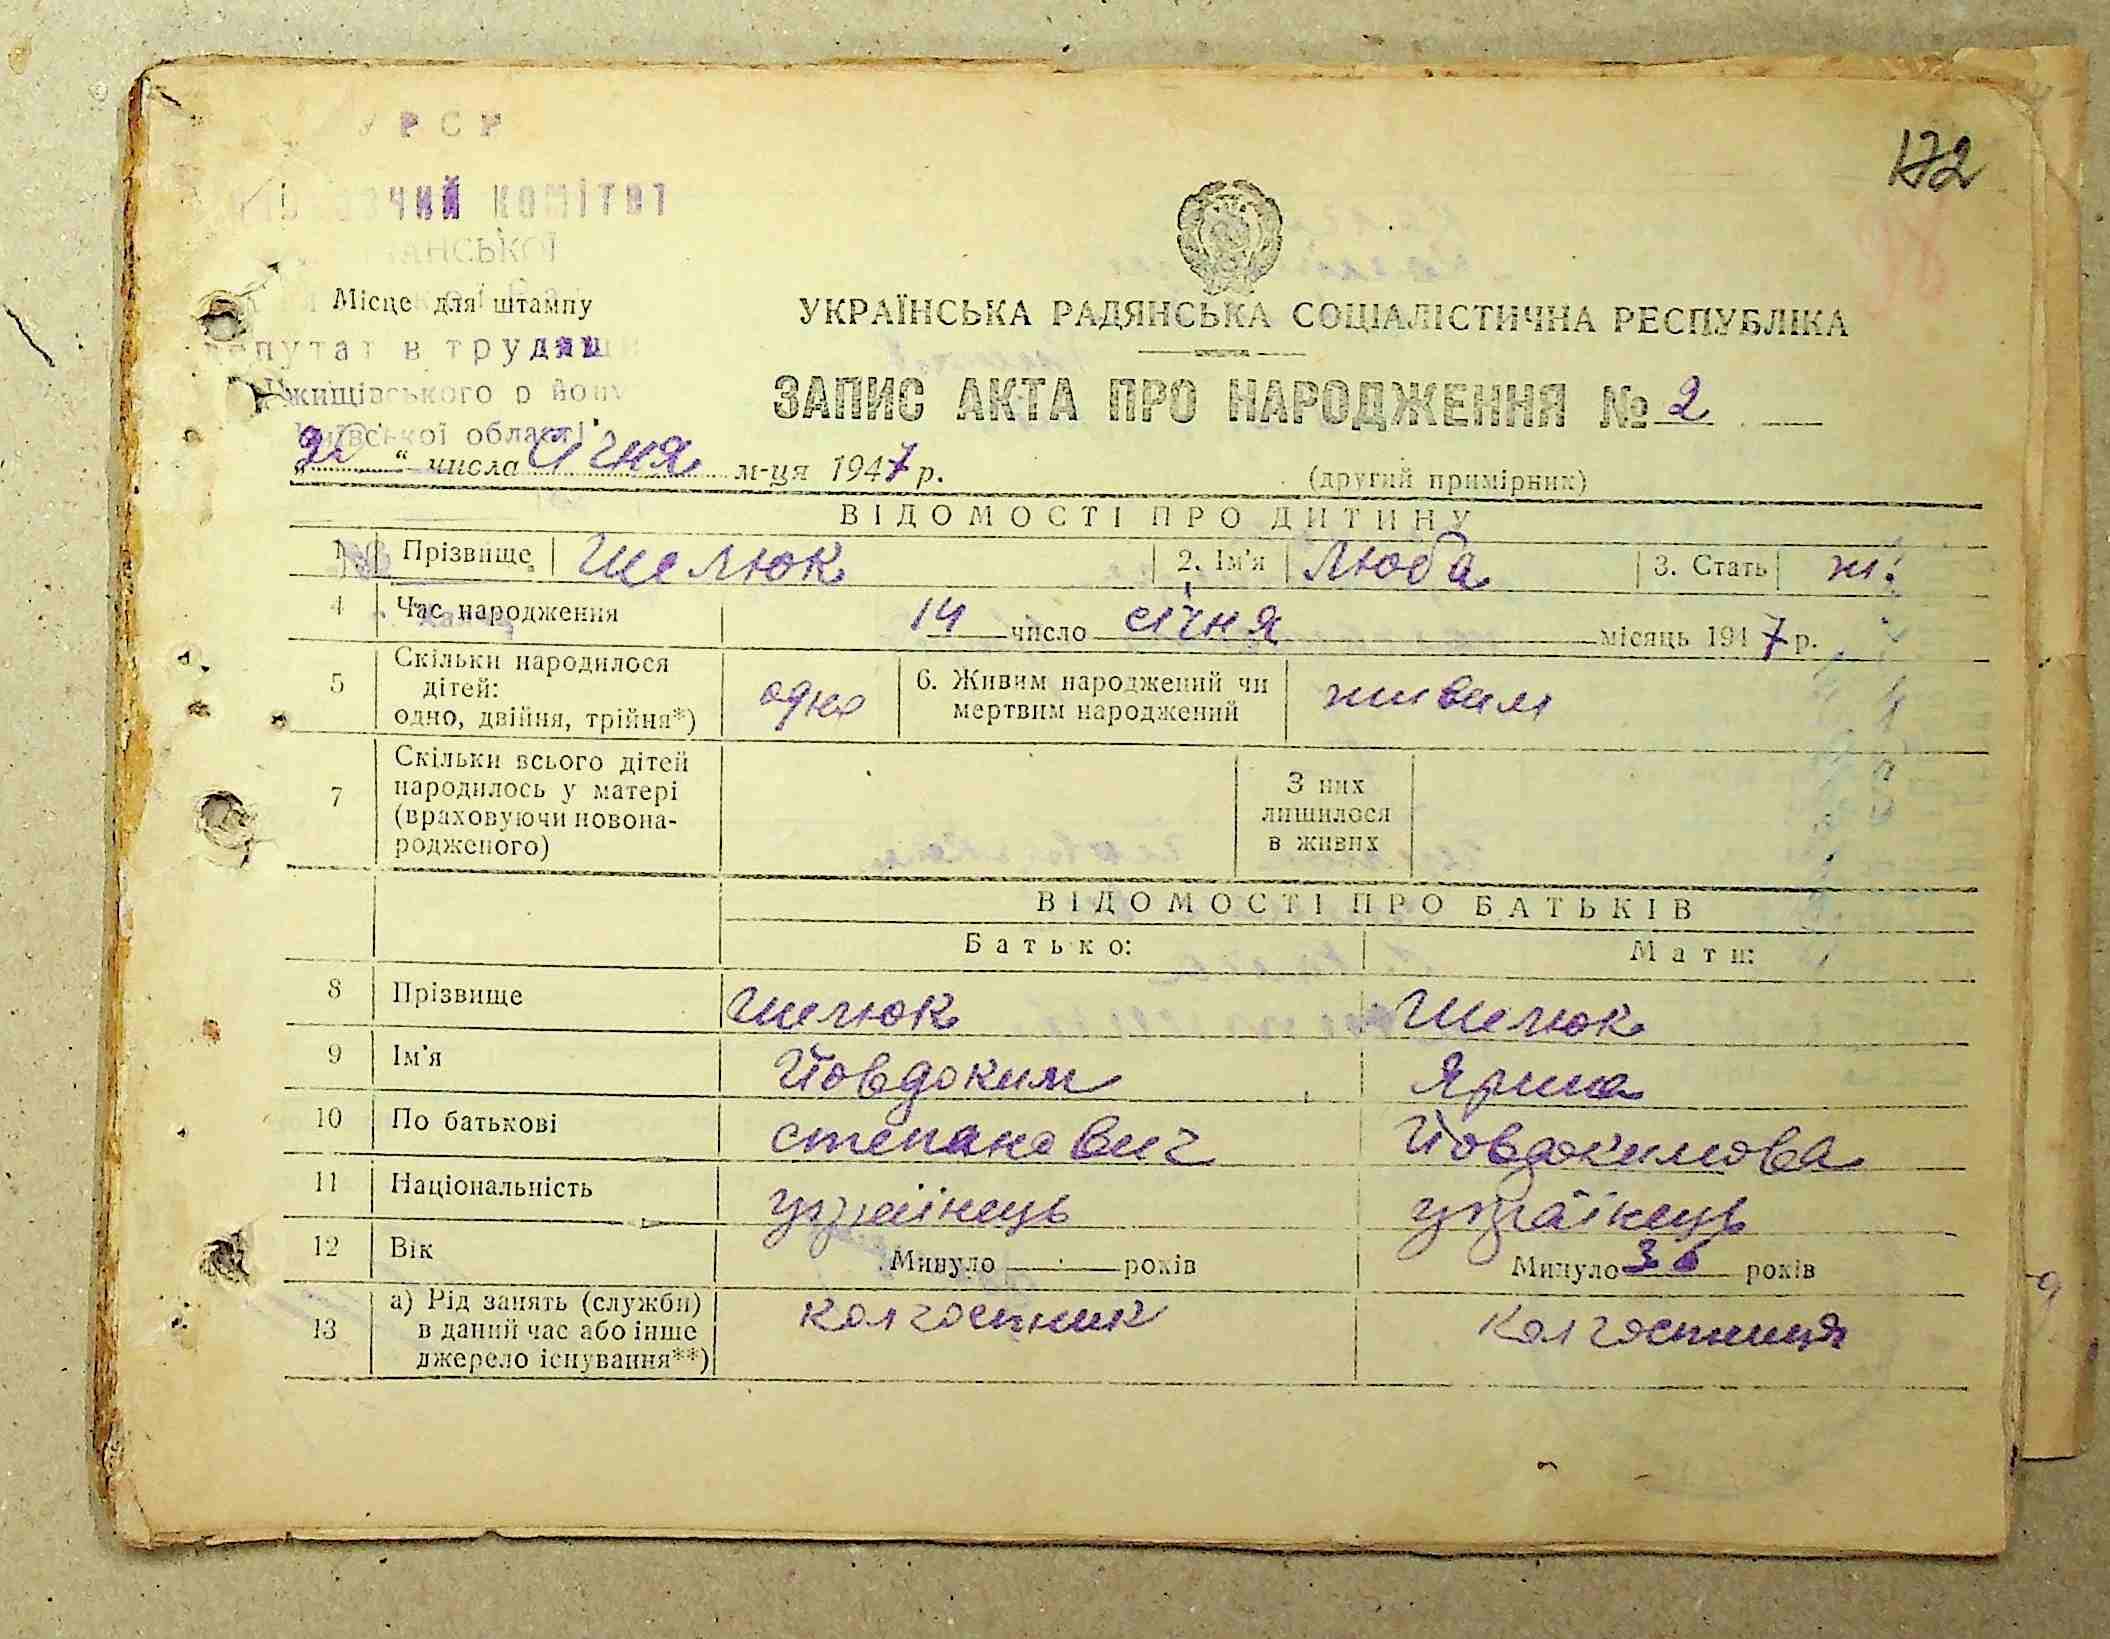 УРСР
172
комітет
Місце для штампу
УКРАЇНСЬКА РАДЯНСЬКА СОЦІАЛІСТИЧНА РЕСПУБЛІКА
трудящи
Ржищівського р йону
ЗАПИС АКТА ПРО НАРОДЖЕННЯ № 2
Київської області
„ “ числа Січня м-ця 1947 р.
(другий примірник)
ВІДОМОСТІ ПРО ДИТИНУ
1 Прізвище Шелюк 2. Ім'я Люба 3. Стать ж.
4 Час народження 14 число січня місяць 1947 р.
5 Скільки народилося дітей: одно, двійня, трійня*) одно 6. Живим народжений чи мертвим народжений живим
7 Скільки всього дітей народилось у матері (враховуючи новонародженого) З них лишилося в живих
ВІДОМОСТІ ПРО БАТЬКІВ
Батько: Мати:
8 Прізвище Шелюк Шелюк
9 Ім'я Йовдоким Ярина
10 По батькові Степанович Йовдокимова
11 Національність українець українець
12 Вік Минуло — років Минуло 36 років
13 а) Рід занять (служби) в даний час або інше джерело існування**) колгоспник колгоспниця